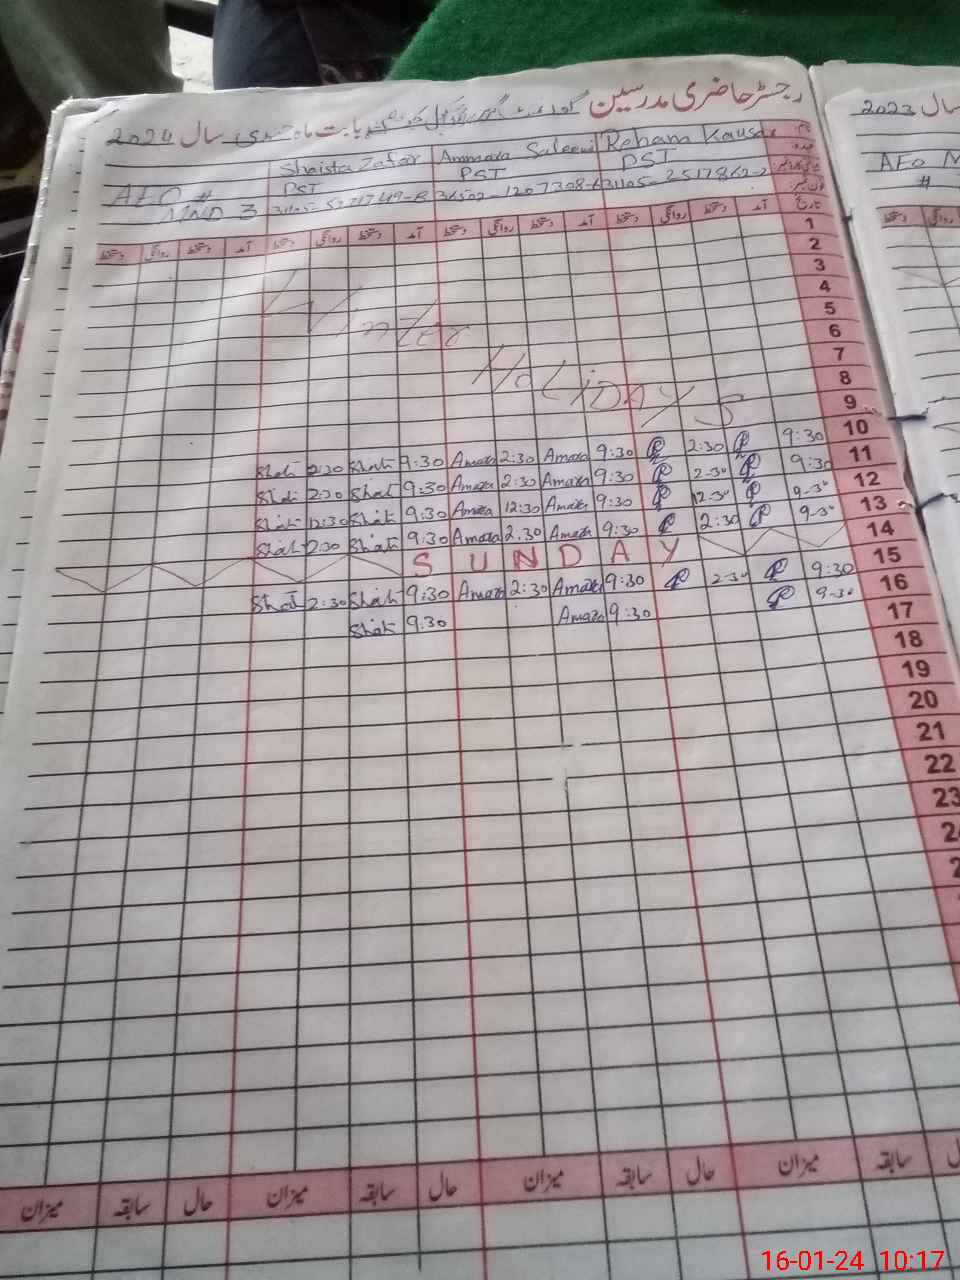 رجسٹر حاضری مدرسین
بابت ماہ جنوری سال 2024
Shaista Zafar Ammara Saleemi Reham Kausar
PST PST PST
AEO #
MND 3
آمد دستخط روانگی دستخط آمد دستخط روانگی دستخط آمد دستخط روانگی دستخط
تاریخ
1
2
3
4
5
6
7
8
9
Winter
HOLIDAYS
Shai 2:30 Shai 9:30 Amara 2:30 Amara 9:30 2:30 9:30 10
Shai 2:30 Shai 9:30 Amara 2:30 Amara 9:30 2-30 9:30 11
Shai 12:30 Shai 9:30 Amara 12:30 Amara 9:30 12-30 9-30 12
Shai 2:30 Shai 9:30 Amara 2:30 Amara 9:30 2:30 9-30 13
SUNDAY 14
Shai 2:30 Shai 9:30 Amara 2:30 Amara 9:30 2-30 9:30 15
Shai 9:30 Amara 9:30 9-30 16
17
18
19
20
21
22
23
میزان سابقہ حال میزان سابقہ حال میزان سابقہ
سال 2023
AEO M
#
16-01-24 10:17